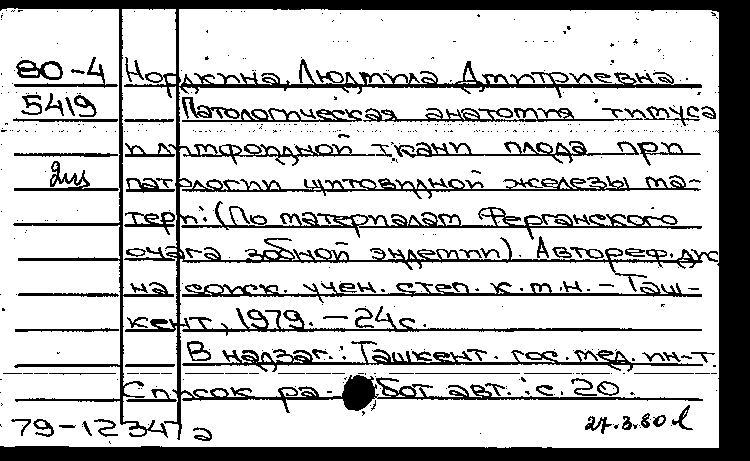 80-4 Нордкина, Людмила Дмитриевна.
5419 Патологическая анатомия тимуса
и лимфоидной ткани плода при
2из патологии щитовидной железы ма-
тери: (По материалам Ферганского
очага зобной эндемии). Автореф. дис
на соиск. учен. степ. к.м.н. – Таш-
кент, 1979. – 24с.
В надзаг.: Ташкент. гос. мед. ин-т.
Список работ авт.: с. 20.
79-12347а
27.3.80